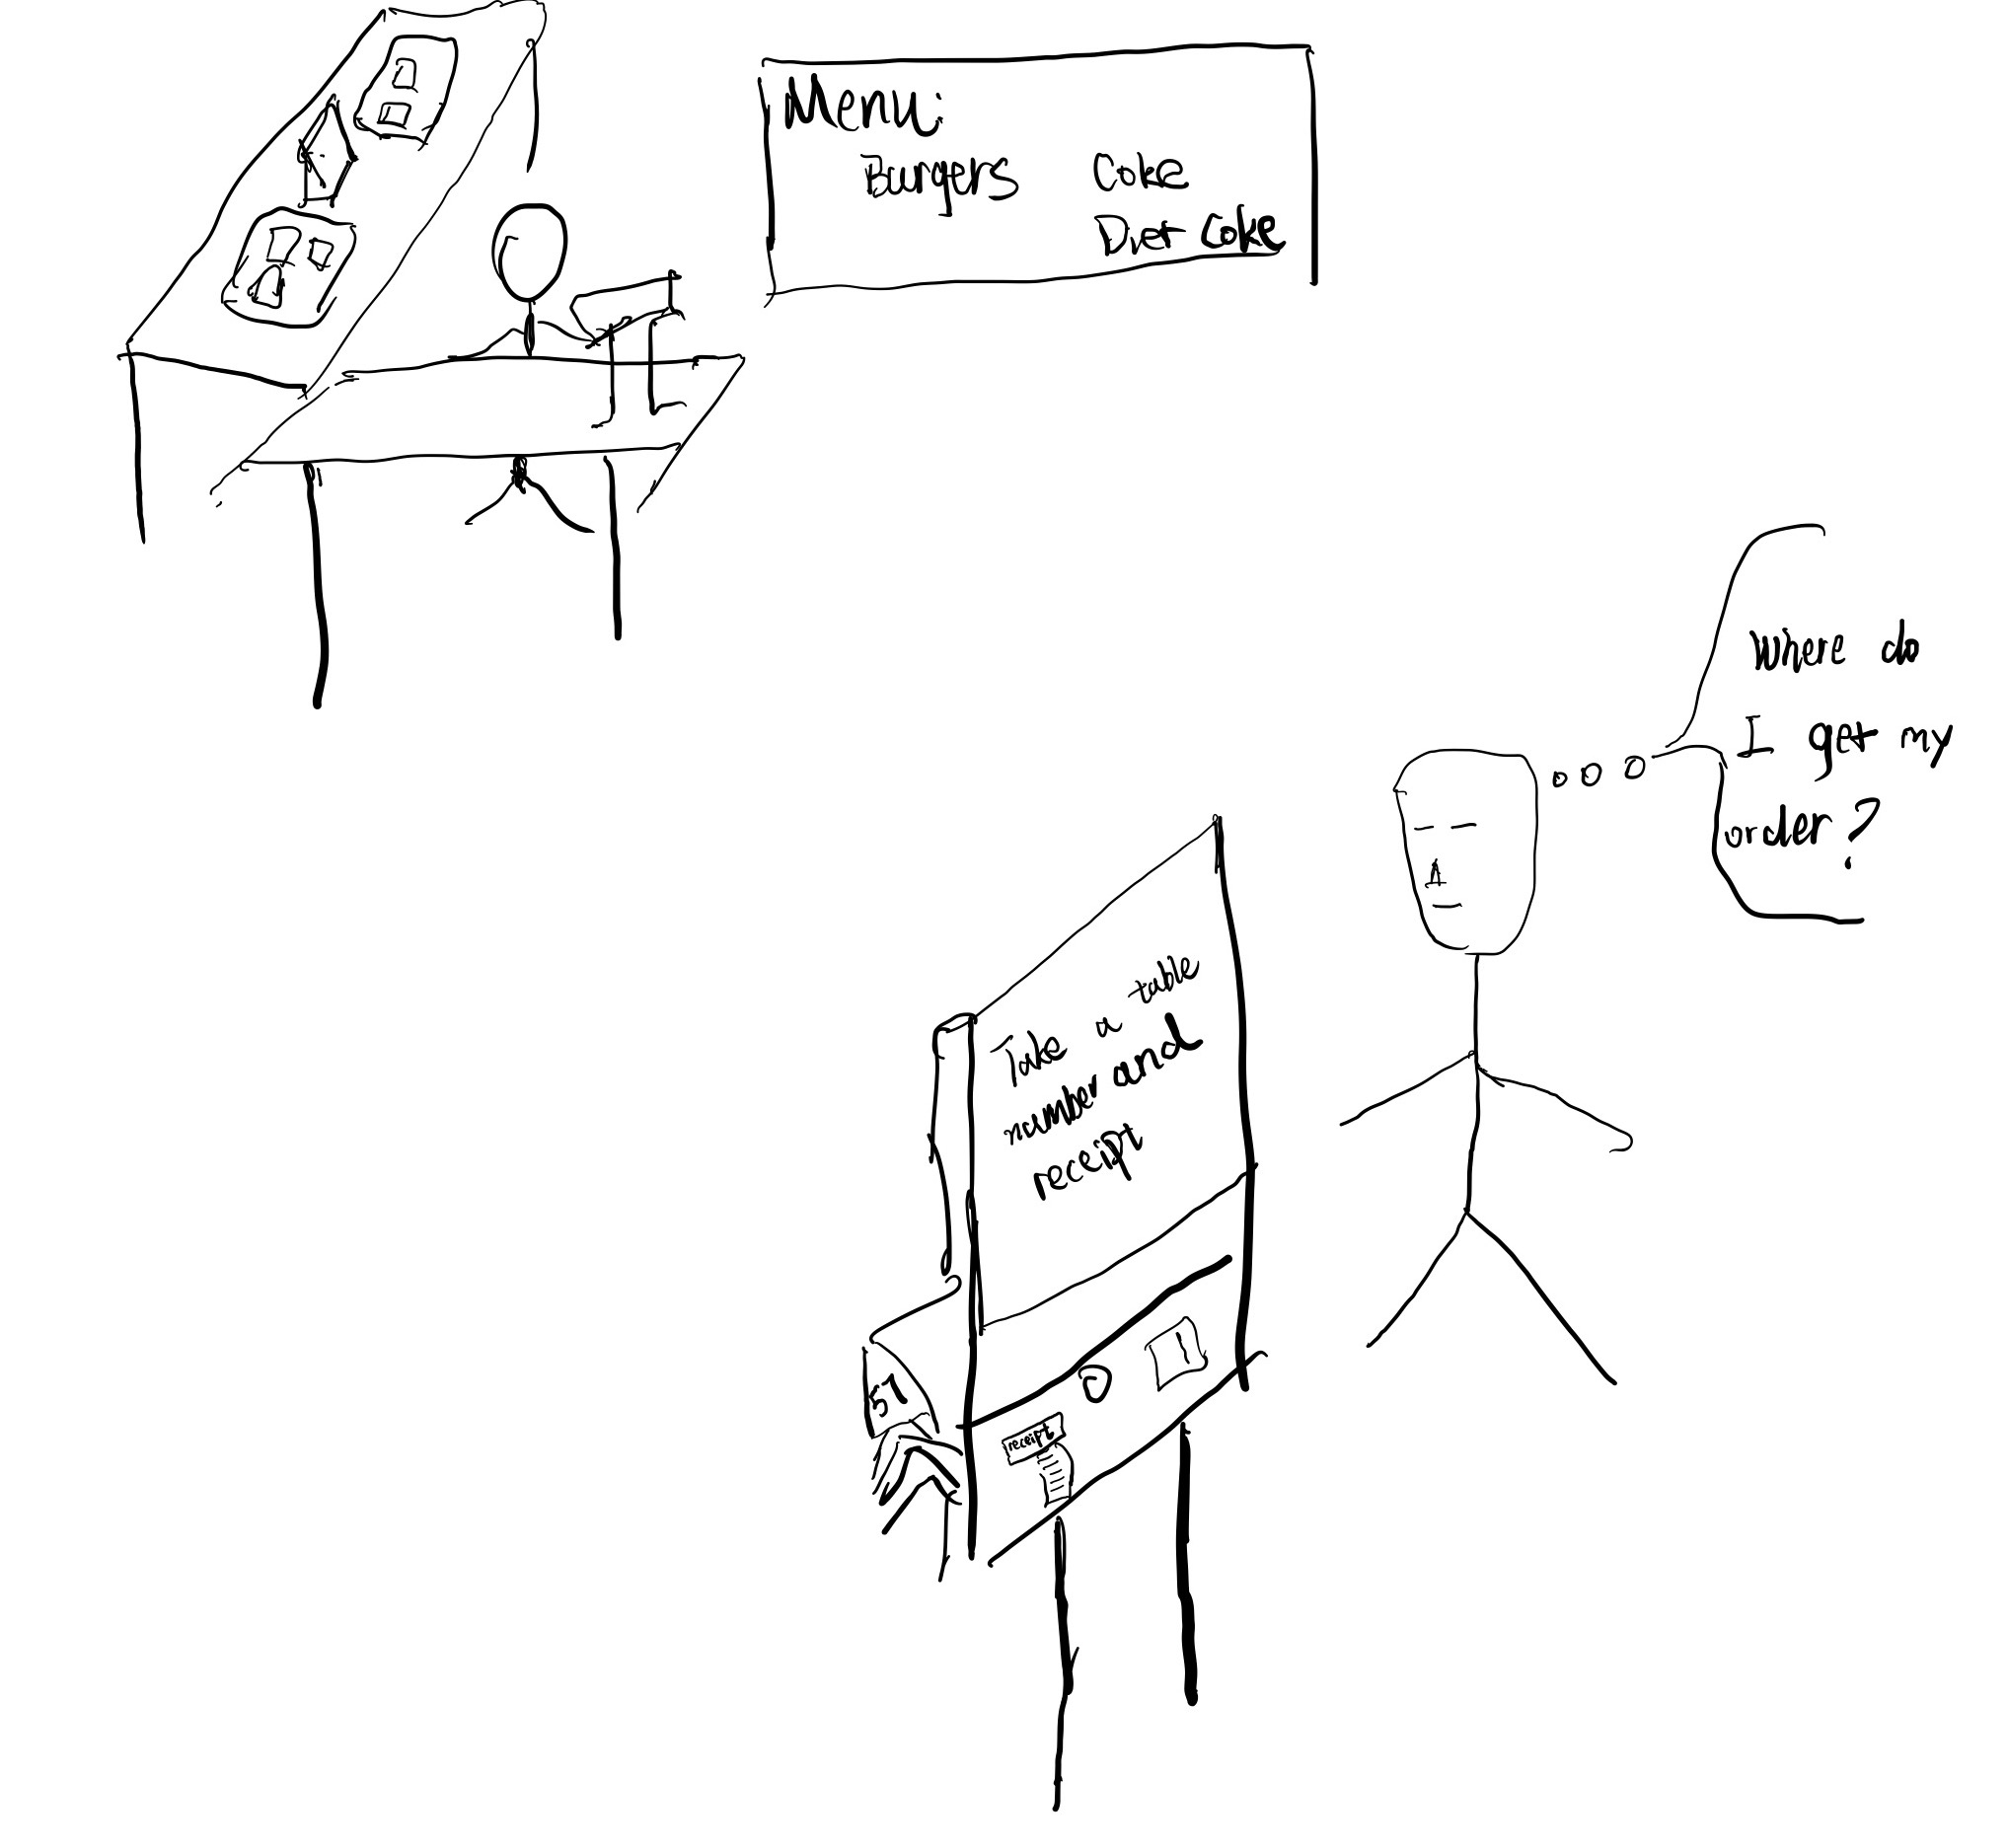 Menu:
Burgers Coke
Diet Coke
Where do
I get my
order?
Take a table
number and
receipt
51
receipt